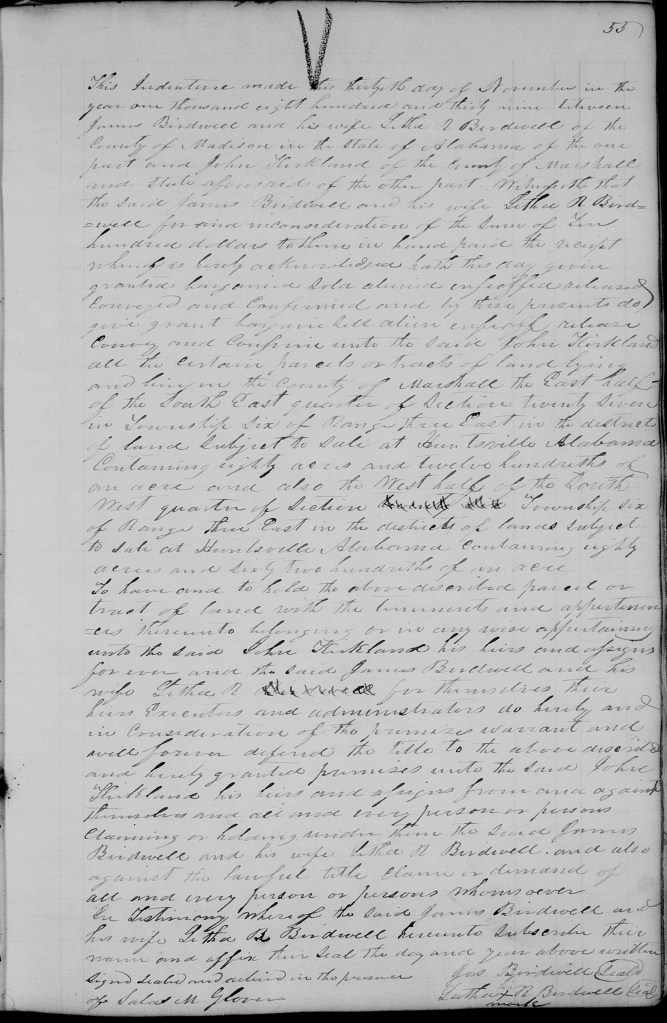 55
This Indenture made this thirtyth day of November in the
year one thousand eight hundred and thirty nine between
James Birdwell and his wife Letha N Birdwell of the
County of Madison in the State of Alabama of the one
part and John Kirkland of the County of Marshall
and State aforesaid of the other part. Witnesseth that
the said James Birdwell and his wife Letha N Bird=
=well for and inconsideration of the Sum of Ten
hundred dollars to them in hand paid the receipt
whereof is hereby acknowledged hath this day given
granted bargained Sold aliened enfeoffed released
Conveyed and Confirmed and by these presents do
give grant bargain Sell alien enfeoff release
Convey and Confirm unto the said John Kirkland
all the certain parcels or tracts of land lying
and being in the County of Marshall the East half
of the South East quarter of Section twenty Seven
in Township Six of Range three East in the district
of land Subject to Sale at Huntsville Alabama
Containing eighty acres and twelve hundredths of
an acre and also the West half of the South
West quarter of Section Township six
of Range three East in the districts of lands subject
to sale at Huntsville Alabama Containing eighty
acres and sixty two hundredths of an acre
To have and to hold the above described parcel or
tract of land with the tenements and appurtenan
=ces thereunto belonging or in any wise appertaining
unto the said John Kirkland his heirs and assigns
for ever and the said James Birdwell and his
wife Letha N for themselves their
heirs Executors and administrators do hereby and
in Consideration of the premises warrant and
will forever defend the title to the above described
and hereby granted premises unto the said John
Kirkland his heirs and assigns from and against
themselves and all and every person or persons
Claiming or holding under them the said James
Birdwell and his wife Letha N Birdwell. and also
against the lawful title Claim or demand of
all and every person or persons whomsoever
In Testimony whereof the said James Birdwell and
his wife Letha Birdwell hereunto Subscribe their
name and affix their Seal the day and year above written
Signed Sealed and deliverd in the presence Jas Birdwell (Seal)
of Salas M Glover Letha X N Birdwell (Seal)
mark